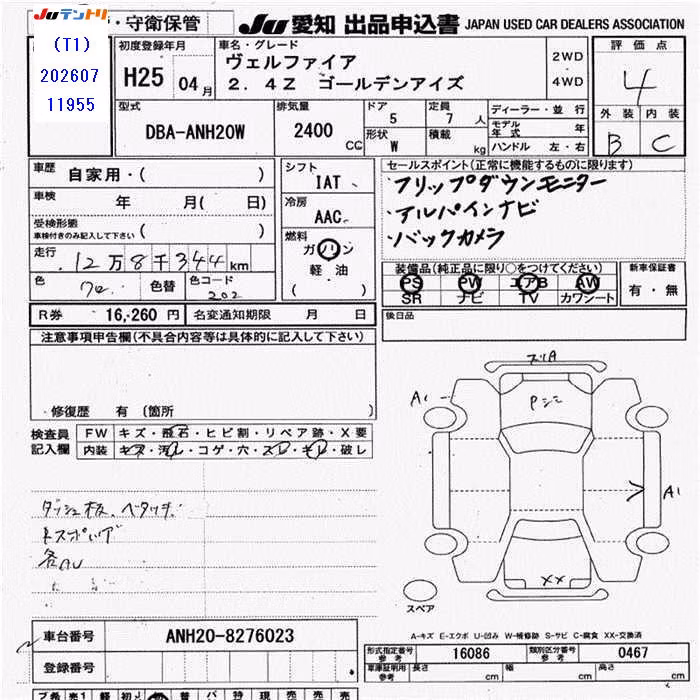 Juテントリ
・守衛保管
Ju 愛知 出品申込書 JAPAN USED CAR DEALERS ASSOCIATION
(T1)
202607
11955
初度登録年月
H25 04月
車名・グレード
ヴェルファイア
2.4Z ゴールデンアイズ
2WD
4WD
評価点
4
外装 内装
B C
型式
DBA-ANH20W
排気量
2400 CC
ドア
5
形状
W
定員
7人
積載
kg
ディーラー・並行
モデル年式 年
ハンドル 左・右
車歴 自家用・( )
車検 年 月( 日)
受検形態
車検付きのみ記入して下さい ( )
走行 12万8千344km
色 色替 色コード
202
シフト
IAT
冷房
AAC
燃料
ガソリン
軽油
( )
セールスポイント(正常に機能するものに限ります)
・フリップダウンモニター
・アルパインナビ
・バックカメラ
装備品(純正品に限り○をつけてください)
PS PW エアB AW
SR ナビ TV カワシート
新車保証書
有・無
R券 16,260円 名変通知期限 月 日
後日品
注意事項申告欄(不具合内容等は具体的に記入して下さい)
・修復歴 有 (箇所 )
検査員
記入欄
FW キズ・飛石・ヒビ割・リペア跡・X要
内装 キズ・汚れ・コゲ・穴・スレ・キレ・破レ
ダッシュ板、ベタツキ
各AU
スリA
A1
Pシミ
A1
XX
スペア
A-キズ E-エクボ U-凹み W-補修跡 S-サビ C-腐食 XX-交換済
車台番号 ANH20-8276023
登録番号
形式指定番号
参考
16086
類別区分番号
参考
0467
車庫証明用
参考
長さ cm
幅 cm
高さ cm